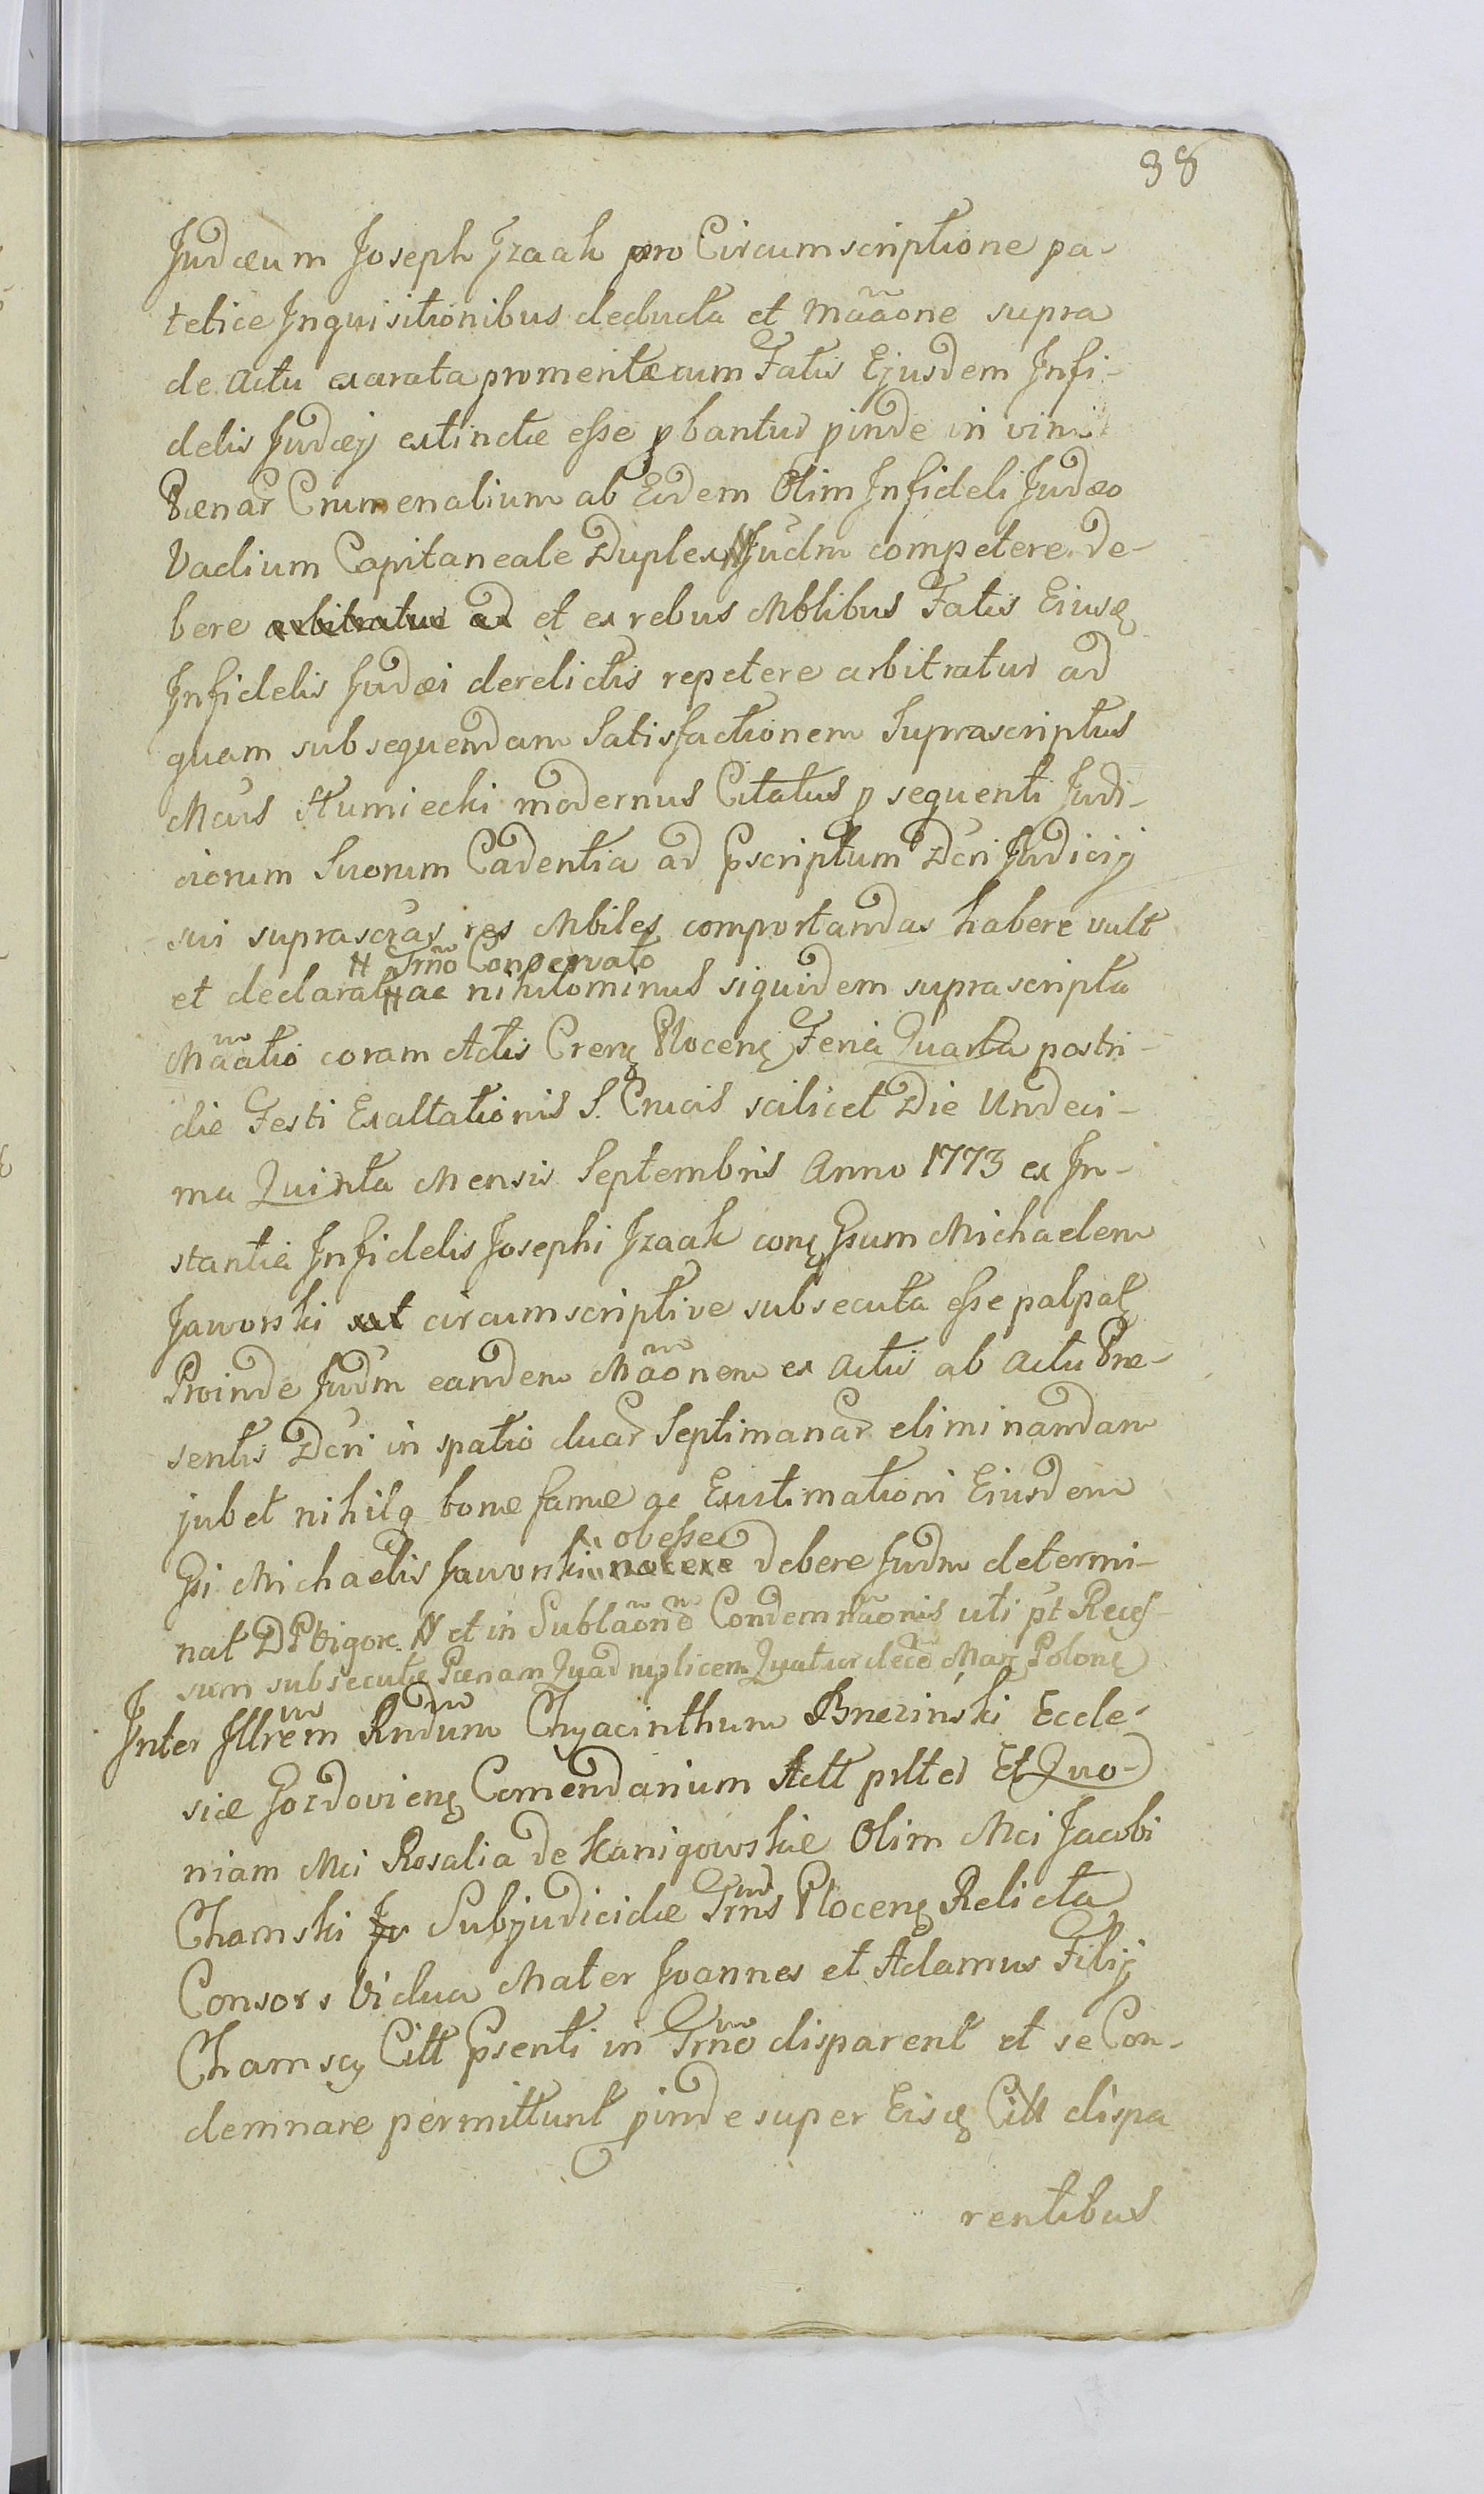 38
Judæum Joseph Jzaak pro Circumscriptione pa-
tetice Inquisitionibus deducta et Mããone supra
de Actu exarata promentæ cum Fatis Ejusdem Infi-
delis Judæj extinctæ esse pbantur pinde in vim
Pænar Crumenalium ab Eodem Olim Infideli Judæo
Vadium Capitaneale Duplex N Judm competere de-
bere arbitratur ad et ex rebus Mblibus Fatis Ejusq
Infidelis Judæi derelictis repetere arbitratur ad
quam subsequendam Satisfactionem Suprascriptus
Mcus Humiecki modernus Citatus p sequenti Judi-
ciorum Suorum Cadentia ad Pscriptum Dcri Judicij
sui suprascras res Mbiles comportandas habere vult
N Trño Conservato
et declarat N ac nihilominus siquidem suprascripta
Mãatio coram Actis Crens Plocens Feria Quarta postri-
die Festi Exaltationis S. Crucis scilicet Die Undeci-
ma Quinta Mensis Septembris Anno 1773 ex In-
stantia Infidelis Josephi Jzaak cong Gsum Michaelem
Jaworski sat circumscriptive subsecuta esse palpat
Proinde Judm eandem Mãonem ex Actis ab Actu Præ-
sentis Dcri in spatio duar Septimanar eliminandam
jubet nihilq bonæ famæ ac Existimationi Eiusdem
obesse
Gsi Michaelis Jaworski nocere debere Judm determi-
nat DPtigore. N et in Sublãone Condemnãonis uti pt Reces-
sum subsecutæ Pænam Quadruplicem Quatuordecẽ Mar Polong
Inter Illrem Rndum Chyacinthum Brzezinski Eccle-
siæ Gozdoviens Comendarium Actt pltes Et Quo-
niam Mci Rosalia de Kanigowskie Olim Mci Jacobi
Chamski Ju Subjudicidæ Trñs Plocens Relicta
Consors Vidua Mater Joannes et Adamus Filij
Chamscy Citt Psenti in Trño disparent et se Con-
demnare permittunt pinde super Eisq Citt dispa
rentibus